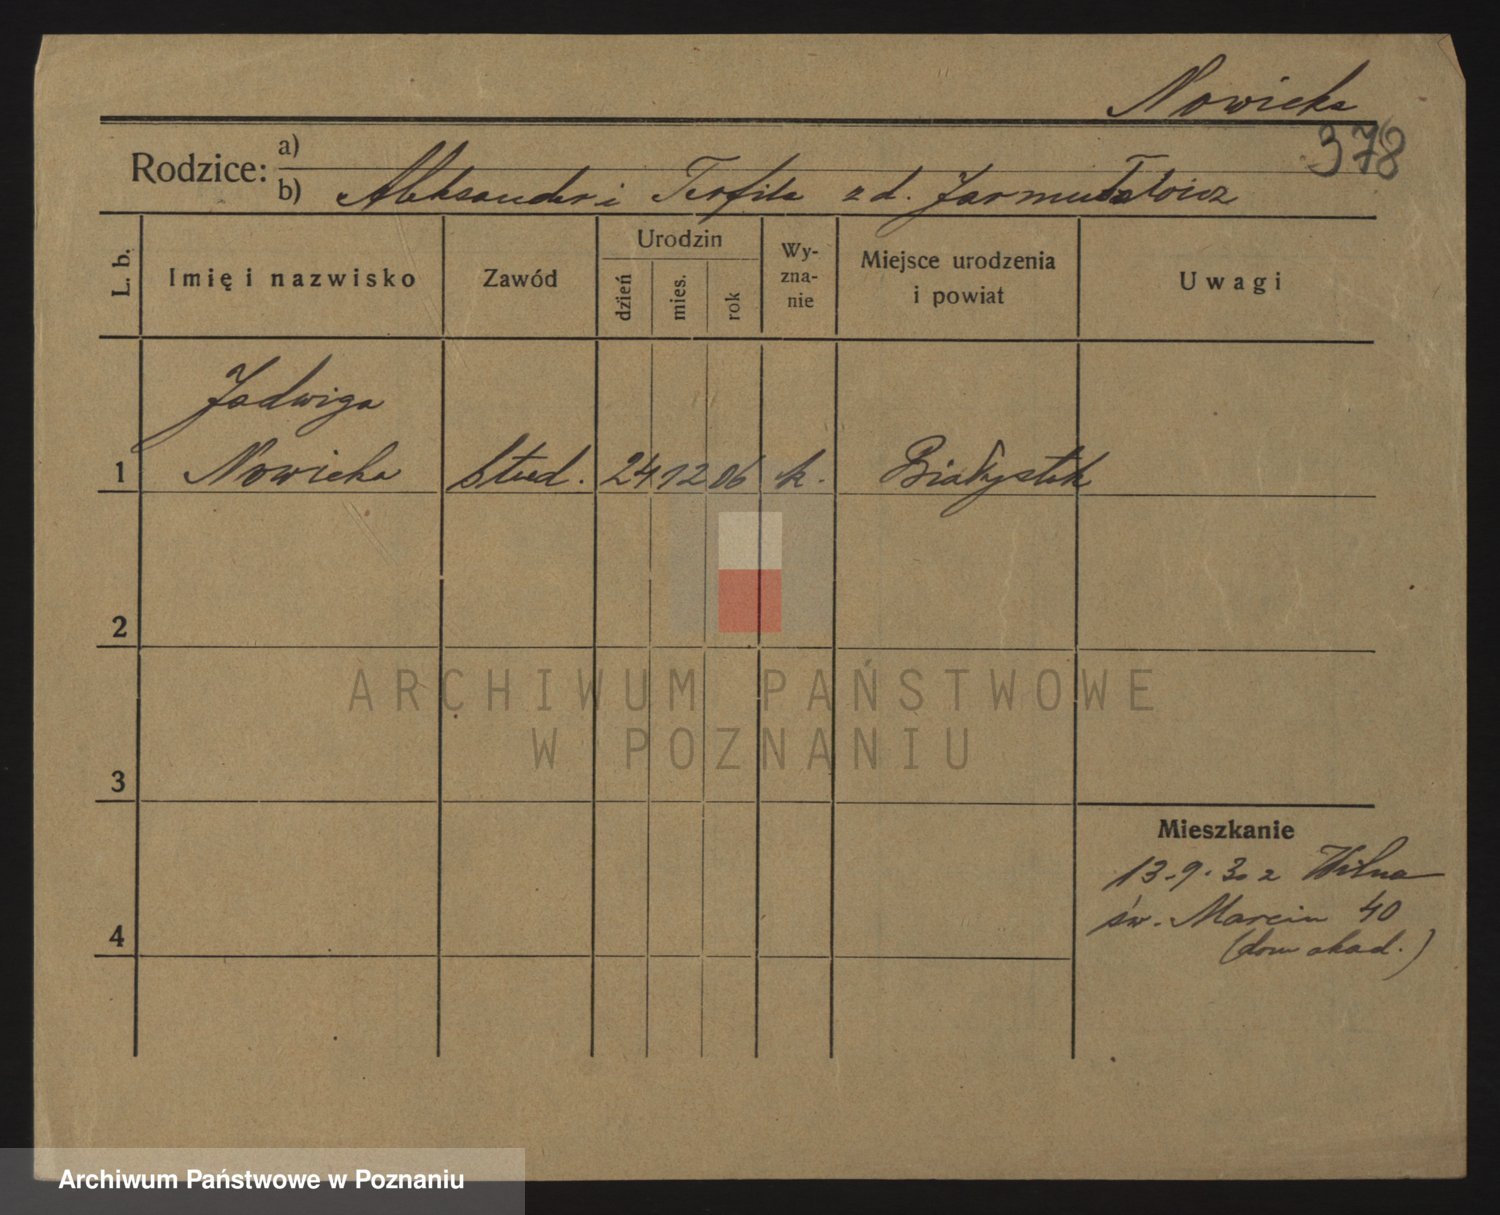 Nowicka
378
Rodzice: a)
b) Aleksander i Teofila z d. Jarmułowicz
L. b.
Imię i nazwisko
Zawód
Urodzin
dzień
mies.
rok
Wy-
zna-
nie
Miejsce urodzenia
i powiat
Uwagi
Jadwiga
1 Nowicka Stud. 24 12 06 k. Białystok
2
3
4
Mieszkanie
13.9.30 z Wilna
św. Marcin 40
(dom akad.)
ARCHIWUM PAŃSTWOWE
W POZNANIU
Archiwum Państwowe w Poznaniu